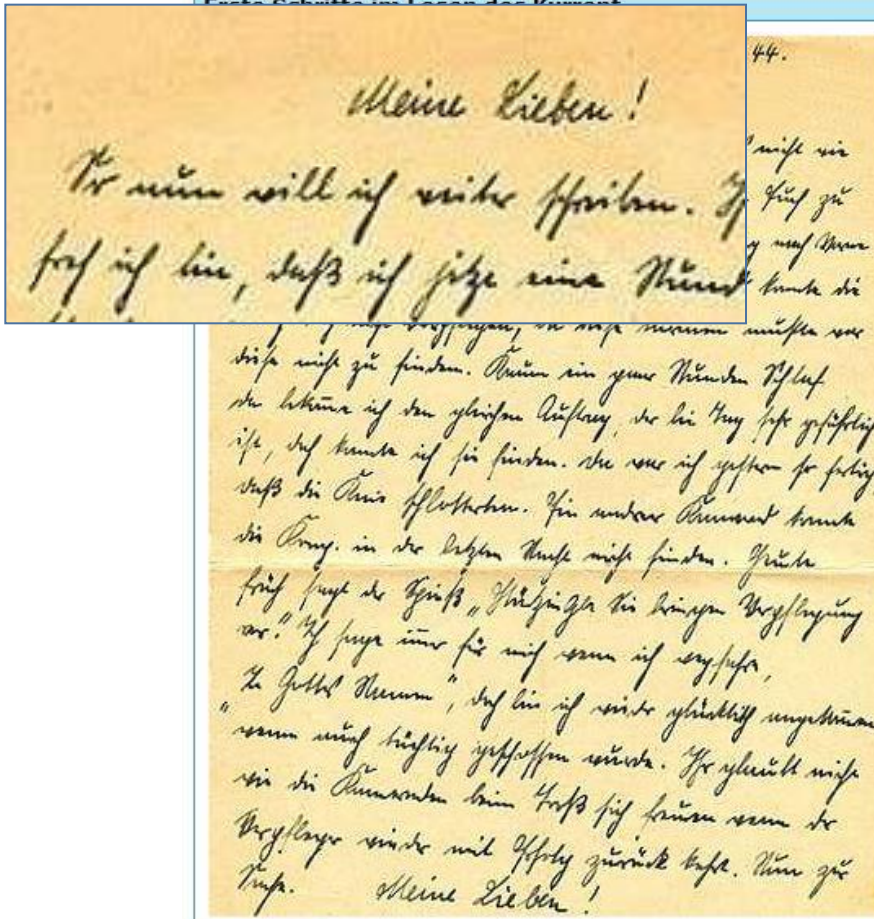 Erste Schritte im Lesen der Kurrent
Meine Lieben!
So nun will ich weiter schreiben. Ih
froh ich bin, daß ich jetzt eine Stund
44.
nicht wie
Euch zu
nach Vorne
konnte die
mußte vor
diese nicht zu finden. Kaum ein paar Stunden Schlaf
da bekam ich den gleichen Auftrag, der bei Tag sehr gefährlich
ist, doch konnte ich sie finden. Da war ich gestern so fertig,
daß die Knie schlotterten. Ein andrer Kamerad konnte
die Komp. in der letzten Nacht nicht finden. Heute
früh sagt der Spieß „ Sie bringen Verpflegung
vor." Ich sage immer für mich wenn ich wegfahre,
„In Gottes Namen", doch bin ich wieder glücklich angekommen
wenn auch tüchtig geschossen wurde. Ihr glaubt nicht
wie die Kameraden beim Troß sich freuen wenn der
Verpfleger wieder mit Erfolg zurück kehrt. Nun zur
Sache. Meine Lieben!